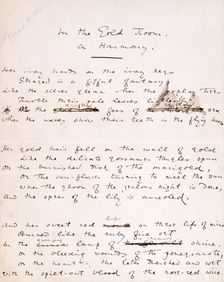 In the Gold Room.
A Harmony.
Her ivory hands on the ivory keys
Strayed in a fitful fantasy
Like the silver gleam when the poplar trees
Rustle their pale leaves listlessly
Or the foam of a sea
When the waves show their teeth in the flying breeze.
Her gold hair fell on the wall of gold
Like the delicate gossamer tangles spun
On the burnished disk of the marigold,
Or the sun-flower turning to meet the sun
When the gloom of the jealous night is done,
And the spear of the lily is aureoled.
And her sweet red lips on these lips of mine
Burned like the ruby fire set
In the swinging lamp of a crimson shrine,
Or the bleeding wounds of the pomegranate,
Or the heart of the lotus drenched and wet
With the spilt-out blood of the rose-red wine.